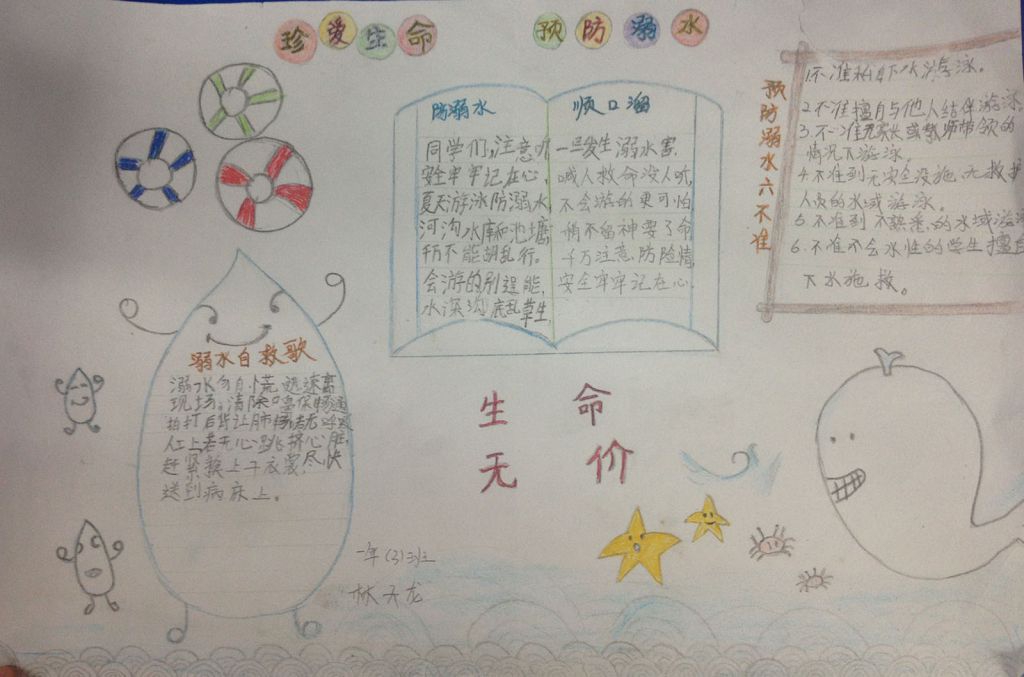 珍爱生命 预防溺水
防溺水 顺口溜
同学们,注意听
安全牢牢记在心,
夏天游泳防溺水
河沟水库和池塘
千万不能胡乱行。
会游的别逞能,
水深沟底乱草生
一旦发生溺水害,
喊人救命没人听,
不会游的更可怕
稍不留神要了命
千万注意防险情
安全牢牢记在心。
预防溺水六不准
1.不准私自下水游泳。
2.不准擅自与他人结伴游泳
3.不准无家长或教师带领的
情况下游泳。
4.不准到无安全设施、无救护
人员的水域游泳。
5.不准到不熟悉的水域游泳
6.不准不会水性的学生擅自
下水施救。
溺水自救歌
溺水自慌迅速离
现场。清除口鼻保畅通
拍打后背让肺
人工上若无心跳挤心脏
赶紧换上干衣裳尽快
送到病床上。
生命
无价
一年(3)班
林天龙